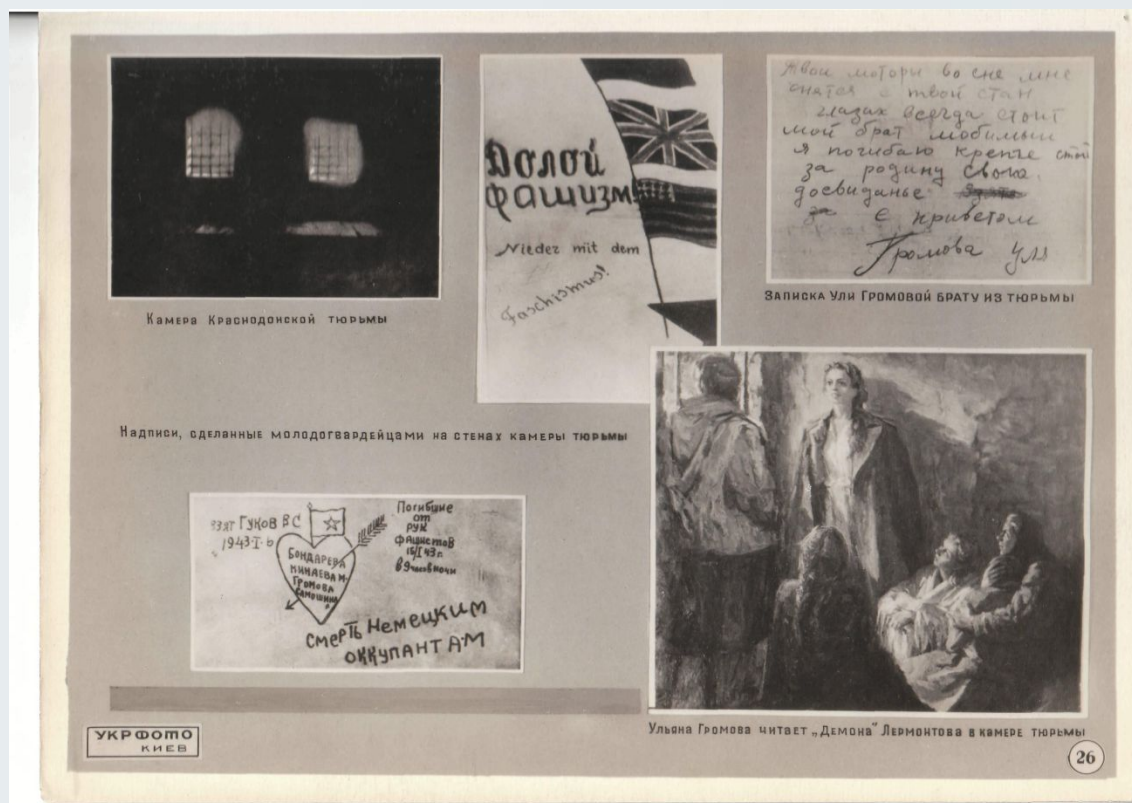 Камера Краснодонской тюрьмы
Долой
фашизм!
Nieder mit dem
Faschismus!
Твои моторы во сне мне
снятся с твой стан
глазах всегда стоит
мой брат любимый
я погибаю крепче стой
за родину свою.
досвиданье
с приветом
Громова Уля
Записка Ули Громовой брату из тюрьмы
Надписи, сделанные молодогвардейцами на стенах камеры тюрьмы
взят Гуков В С
1943-I-6
Бондарева
Минаева
Громова
Самошина
Погибшие
от
рук
фашистов
16/I 43 г.
в 9 часов ночи
смерть немецким
оккупантам
Ульяна Громова читает „Демона" Лермонтова в камере тюрьмы
УКРФОТО
КИЕВ
26